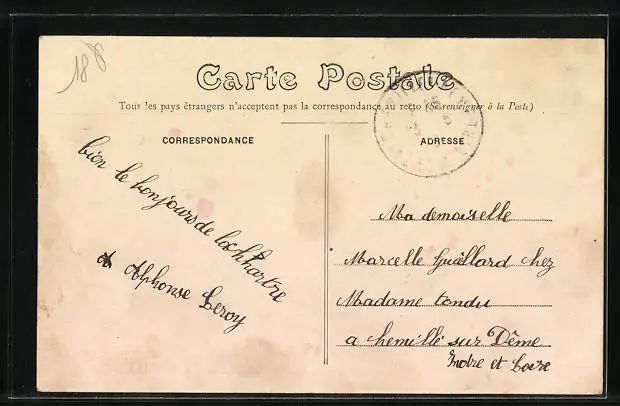 188
Carte Postale
Tous les pays étrangers n'acceptent pas la correspondance au recto (Se renseigner à la Poste)
CORRESPONDANCE
ADRESSE
bien le bonjours de lachhartre
Alphonse Leroy
Ma demoiselle
Marcelle Guillard chez
Madame tondu
a chemillé sur Dême
Indre et Loire